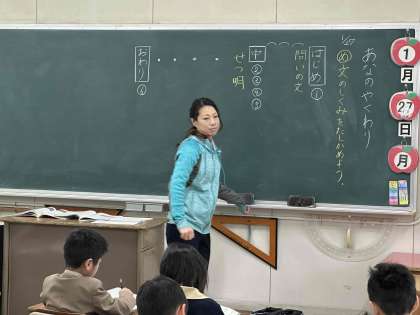 あなのやくわり
め 文のしくみをたしかめよう。
はじめ ①
問いの文
中 ② ③ ④ ⑤
せつ明
おわり ⑥
1
月
27
日
月